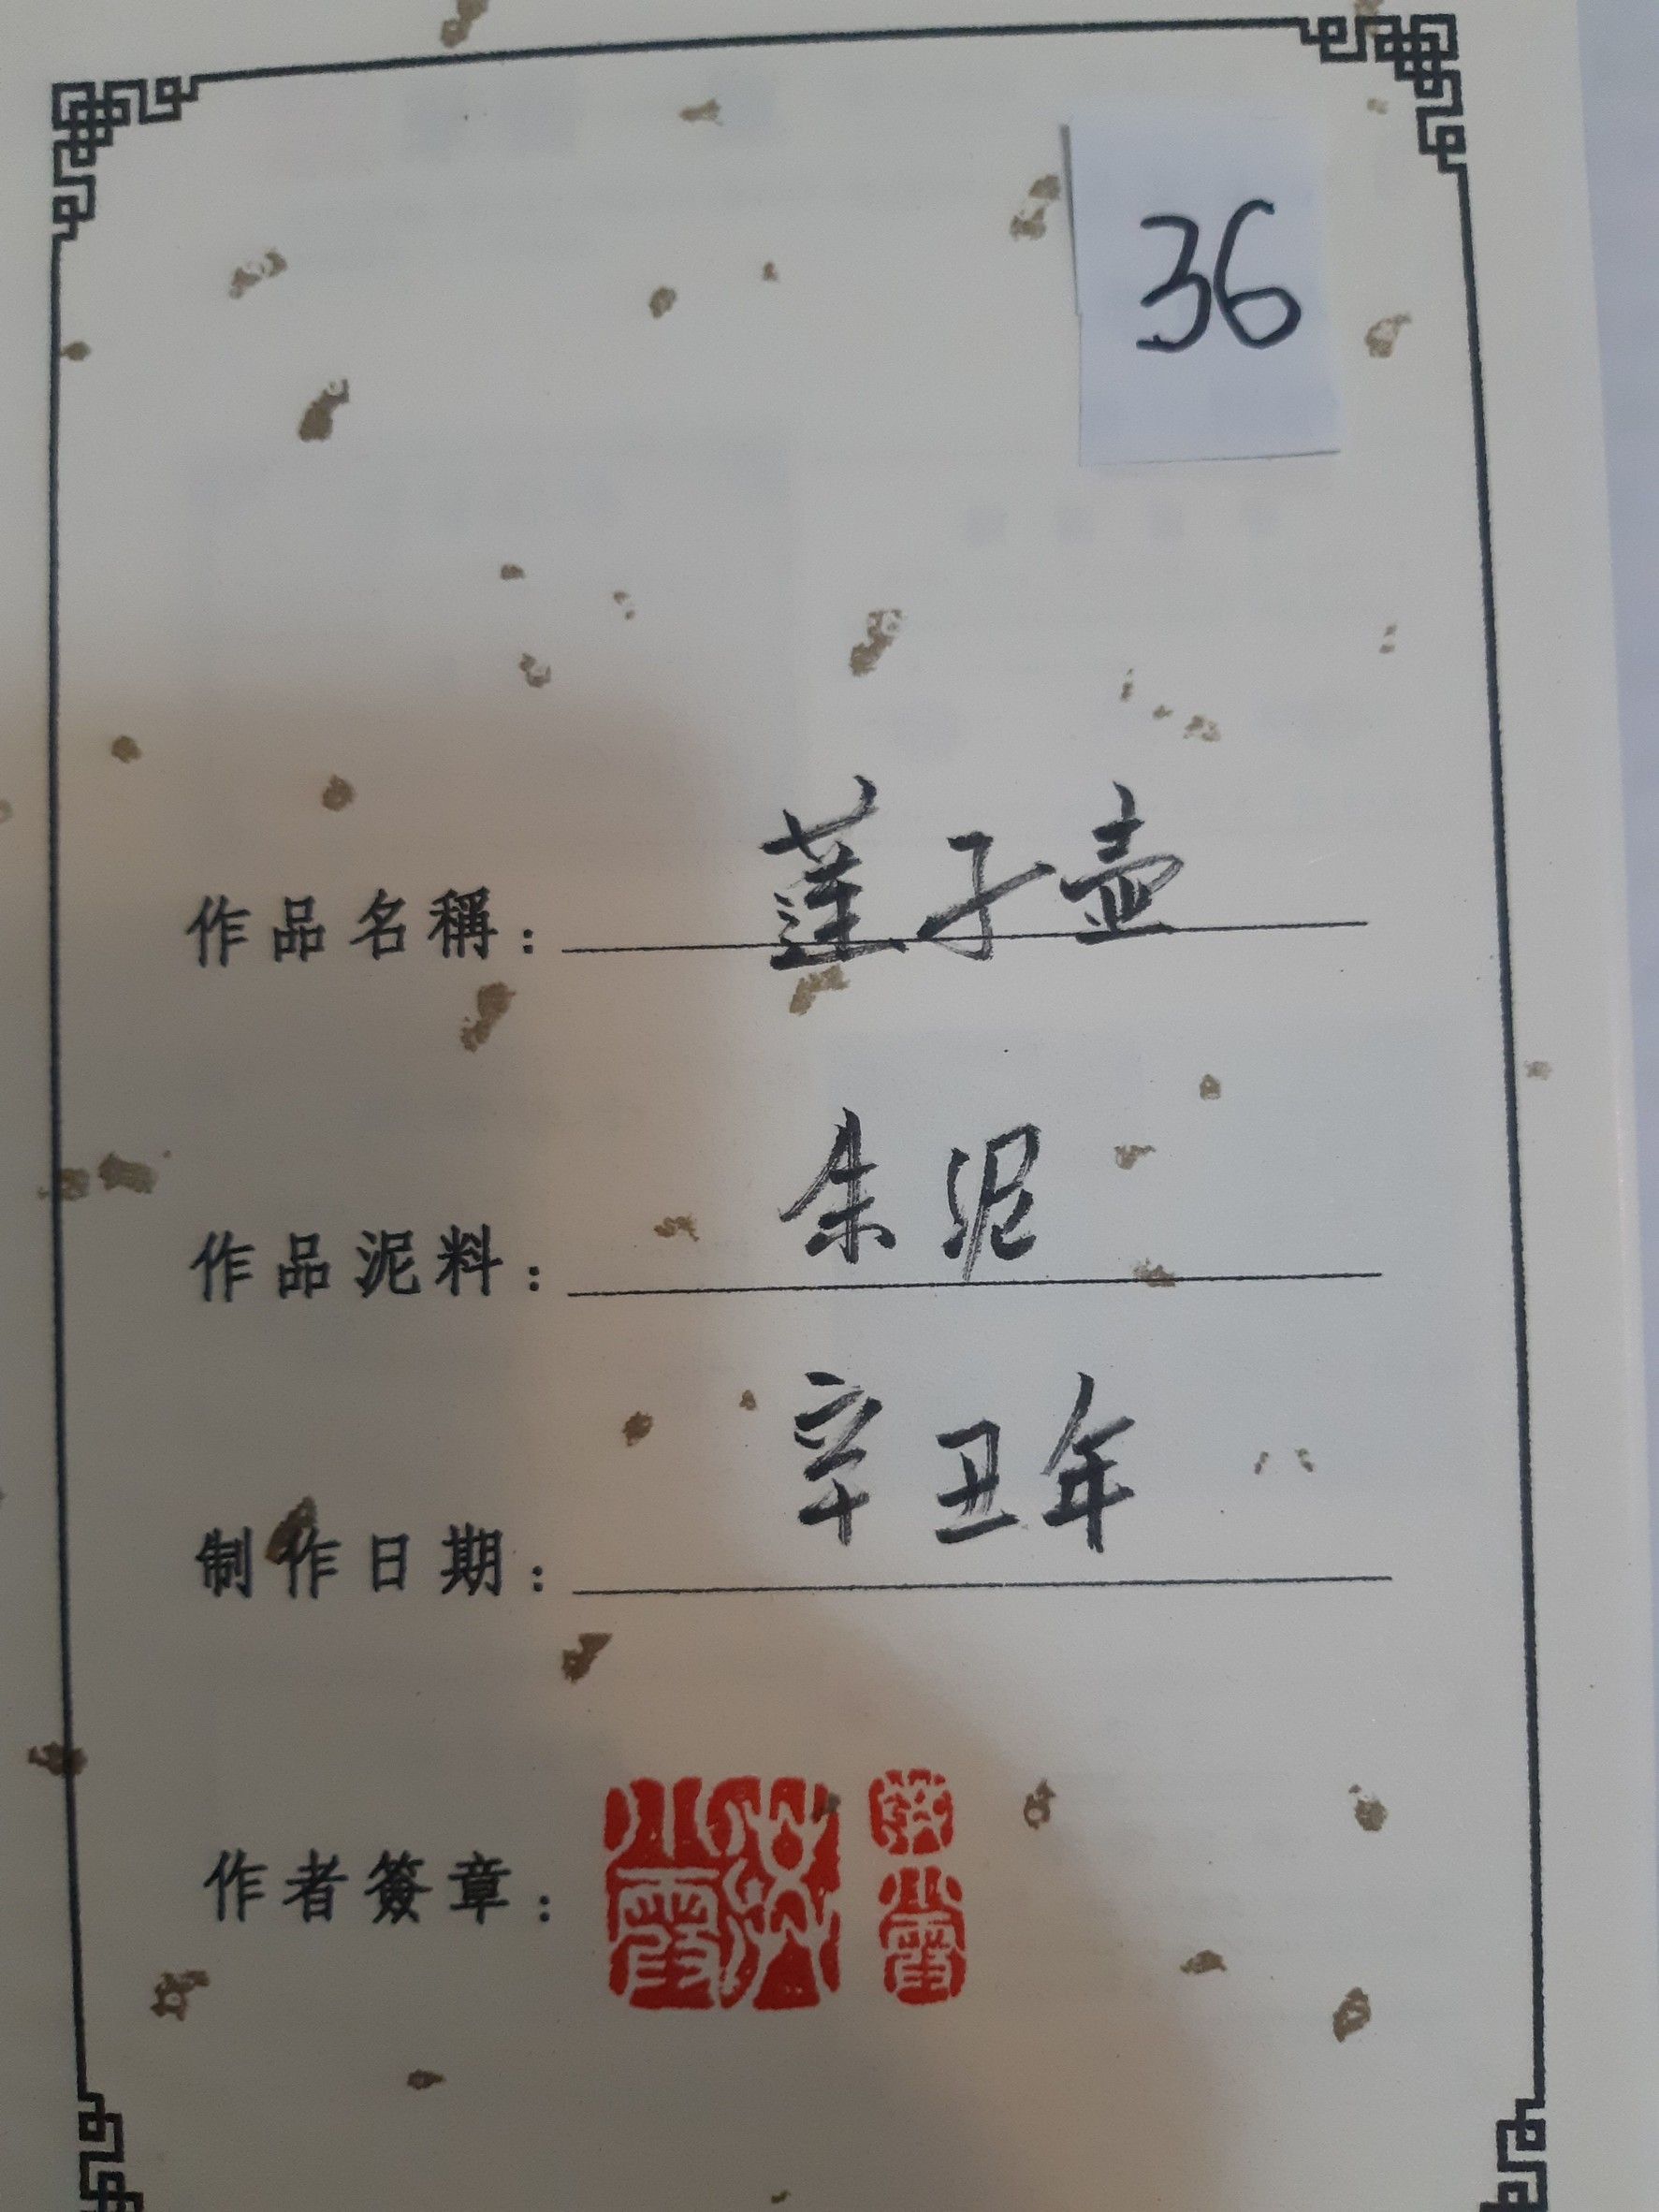 36
作品名稱：蓮子壺
作品泥料：朱泥
制作日期：辛丑年
作者簽章：